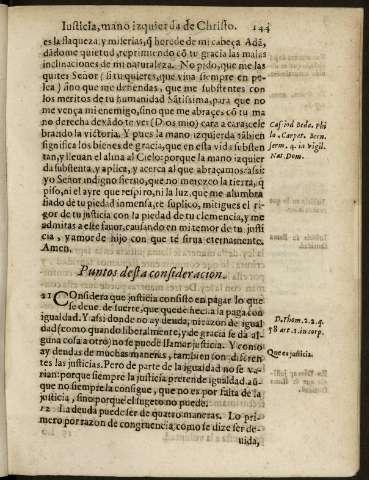 Iusticia, mano izquierda de Christo. 144
es la flaqueza, y miserias, q̃ herede de mi cabeça Adã,
dãdome quietud, reprimiendo cõ tu gracia las malas
inclinaciones de mi naturaleza. No pido, que me las
quites Señor (si tu quieres, que viua siempre en pe-
lea) sino que me defiendas, que me substentes con
los meritos de tu humanidad Sãtissima, para que no
me vença mi enemigo, sino que me abraçes cõ tu ma
no derecha dexãdote ver (Dios mio) cara a cara, cele
brando la victoria. Y pues la mano izquierda tãbien
significa los bienes de gracia, que en esta vida substen
tan, y lleuan el alma al Cielo: porque la mano izquier
da substenta, y aplica, y acerca al que abraçamos: assi:
yo Señor indigno sieruo, que no merezco la tierra, q̃
piso, ni el ayre que respiro, ni la luz, que me alumbra
fiado de tu piedad inmensa, te suplico, mitigues el ri-
gor de tu justicia con la piedad de tu clemencia, y me
admitas a este fauor, causando en mi temor de tu justi
cia, y amor de hijo con que te sirua eternamente.
Amen.
Cassiod. Beda. Phi
lo. Carpat. Bern.
serm. 4. in Vigil.
Nat. Dom.
Puntos desta consideracion.
21 COnsidera que justicia consiste en pagar lo que
se deue. de suerte, que quede hecha la paga con
igualdad. Y assi donde no ay deuda, ni razon de igual
dad (como quando liberalmente, y de gracia se da al-
guna cosa a otro) no se puede llamar justicia. Y como
ay deudas de muchas maneras, tambien son diferen
tes las justicias. Pero de parte de la igualdad no se va-
rian: porque siempre la justicia pretende igualdad, aũ
que no siempre la consigue, que no es por falta de la
justicia, sino porque el sugeto no puede.
D. Thom. 2. 2. q.
58 art. 2. in corp.
Que es justicia.
22 La deuda puede ser de quatro maneras. Lo pri-
mero por razon de congruencia, como se dize ser de-
uida,